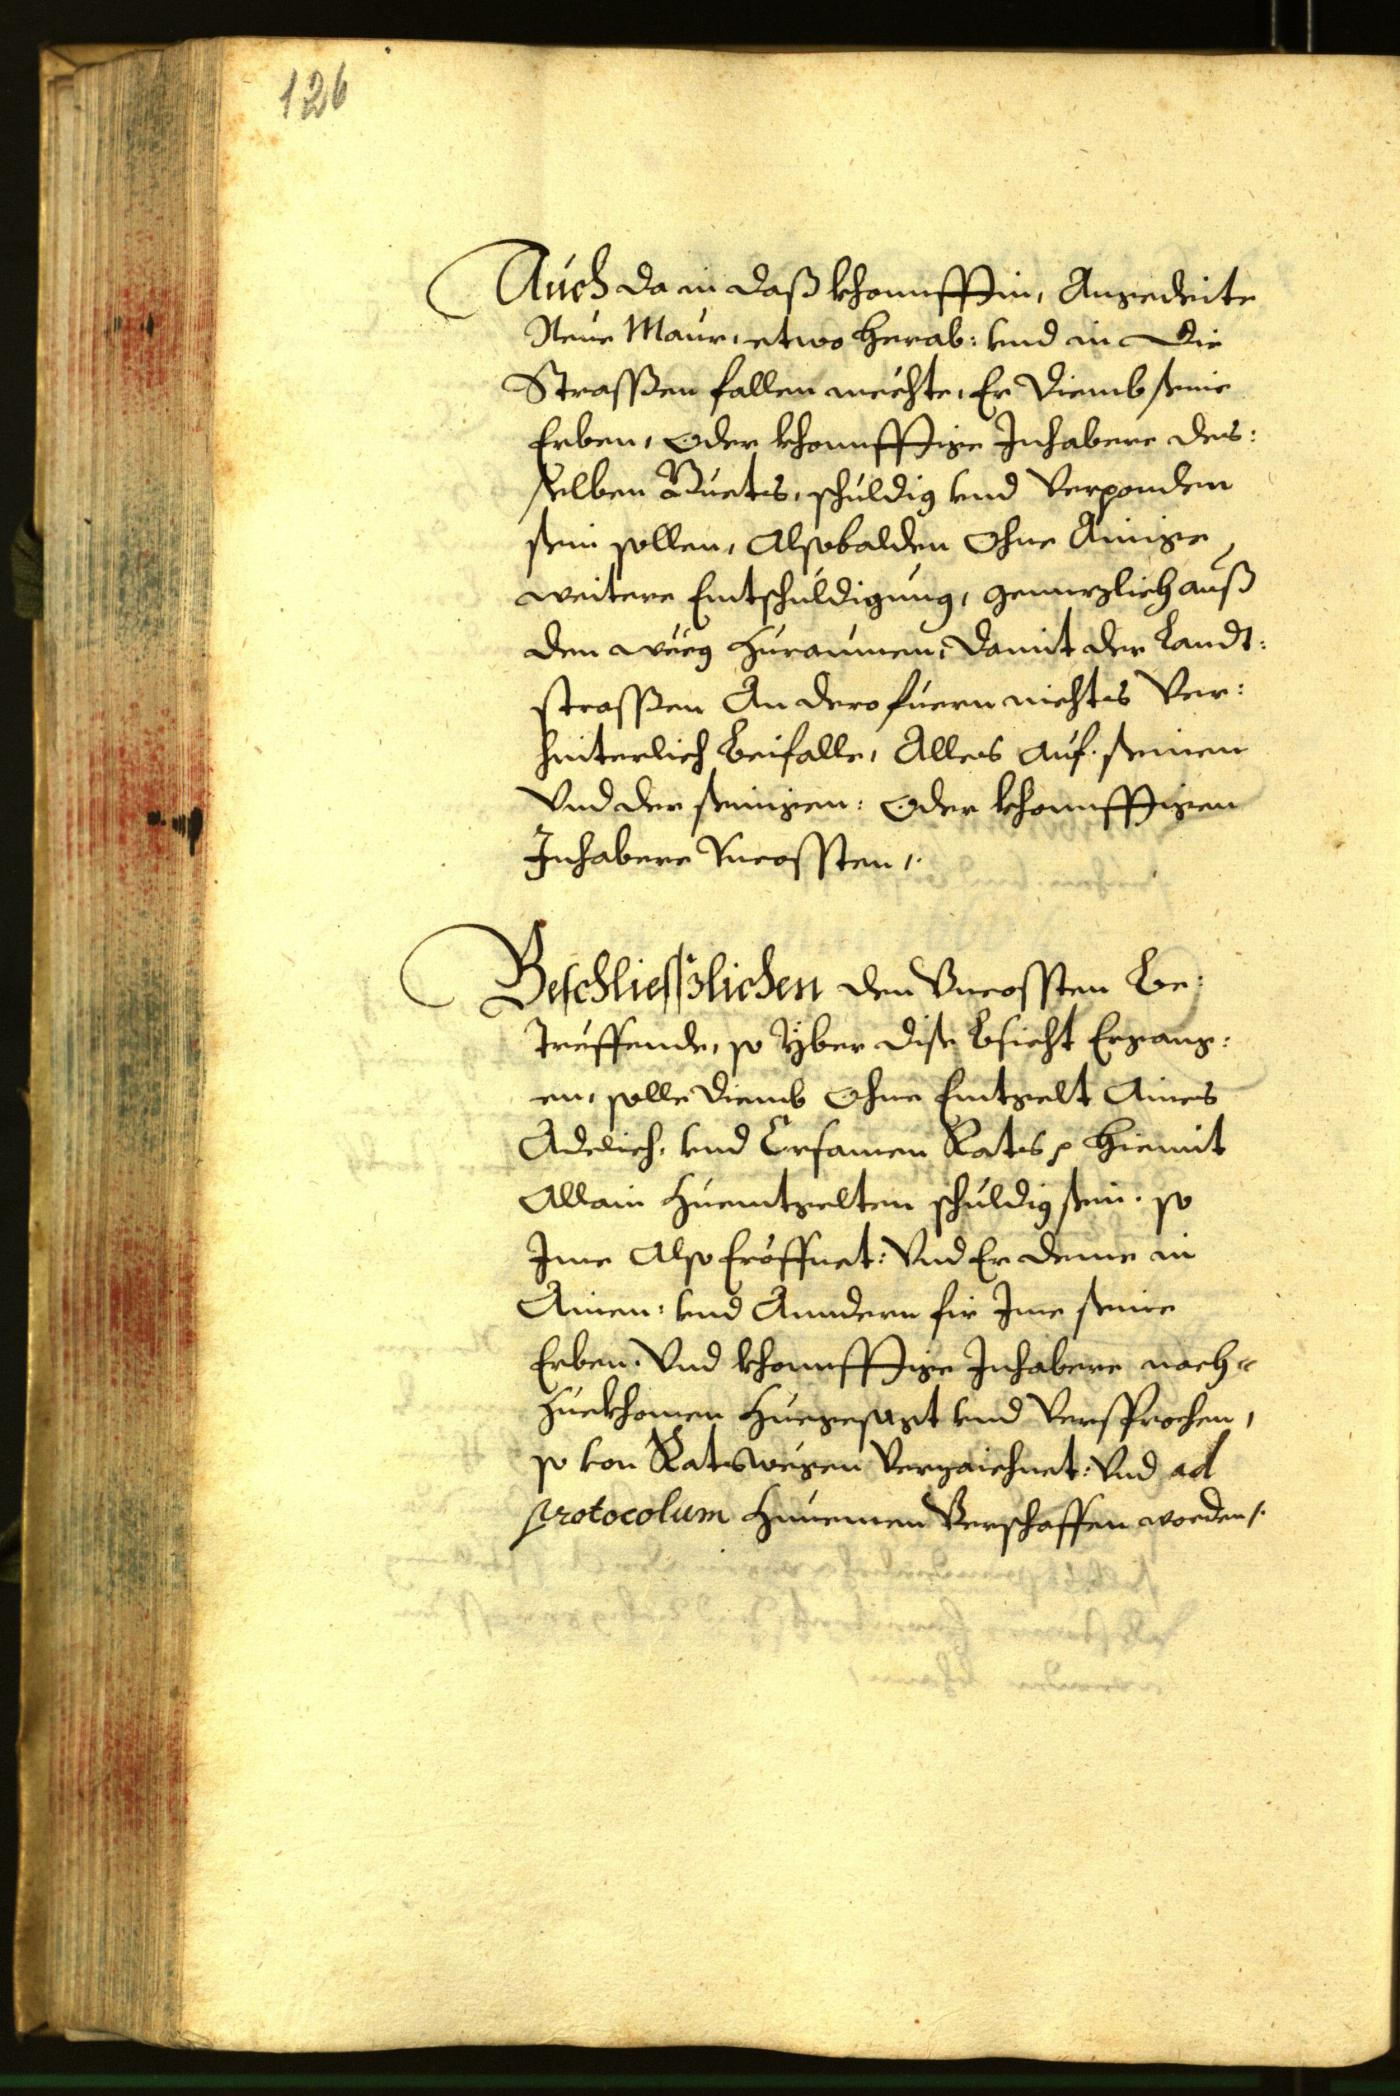 126
Auch da in daß khonnfftin, Angedeite
Neue Maur, etwo herab: vnd in die
Strassen fallen mechte, Er Diemb seine
Erben, Oder khonnfftige Inhabere des:
selben Guets, schuldig vnd Verponden
sein sollen, Alsobalden Ohne Ainige
weitere Entschuldigung, gennzlich auß
den weeg Zuraumen, Damit der Landt:
strassen An dero fuern nichts Ver:
hinterlich beifalle, Alles auf seinen
Vnd der seinigen: Oder khonnfftigen
Inhabere Vncossten /.
Beschliesslichen den Vncossten be:
treffende, so Yber dise bsicht Ergang:
en, solle Diemb Ohne Entgelt Aines
Adelich: vnd Ersamen Rats p hiemit
Allain Zuentgelten schuldig sein. so
Ime Also Eröffnet: Vnd Er deme in
Ainen: vnd Anndern fir Ime seine
Erben, Vnd khonnfftige Inhabere nach=
Zuekhomen Zuegesagt vnd Versprochen,
so von Ratswegen Verzaichnet: Vnd ad
protocolum Zunemen Verschaffen worden /.